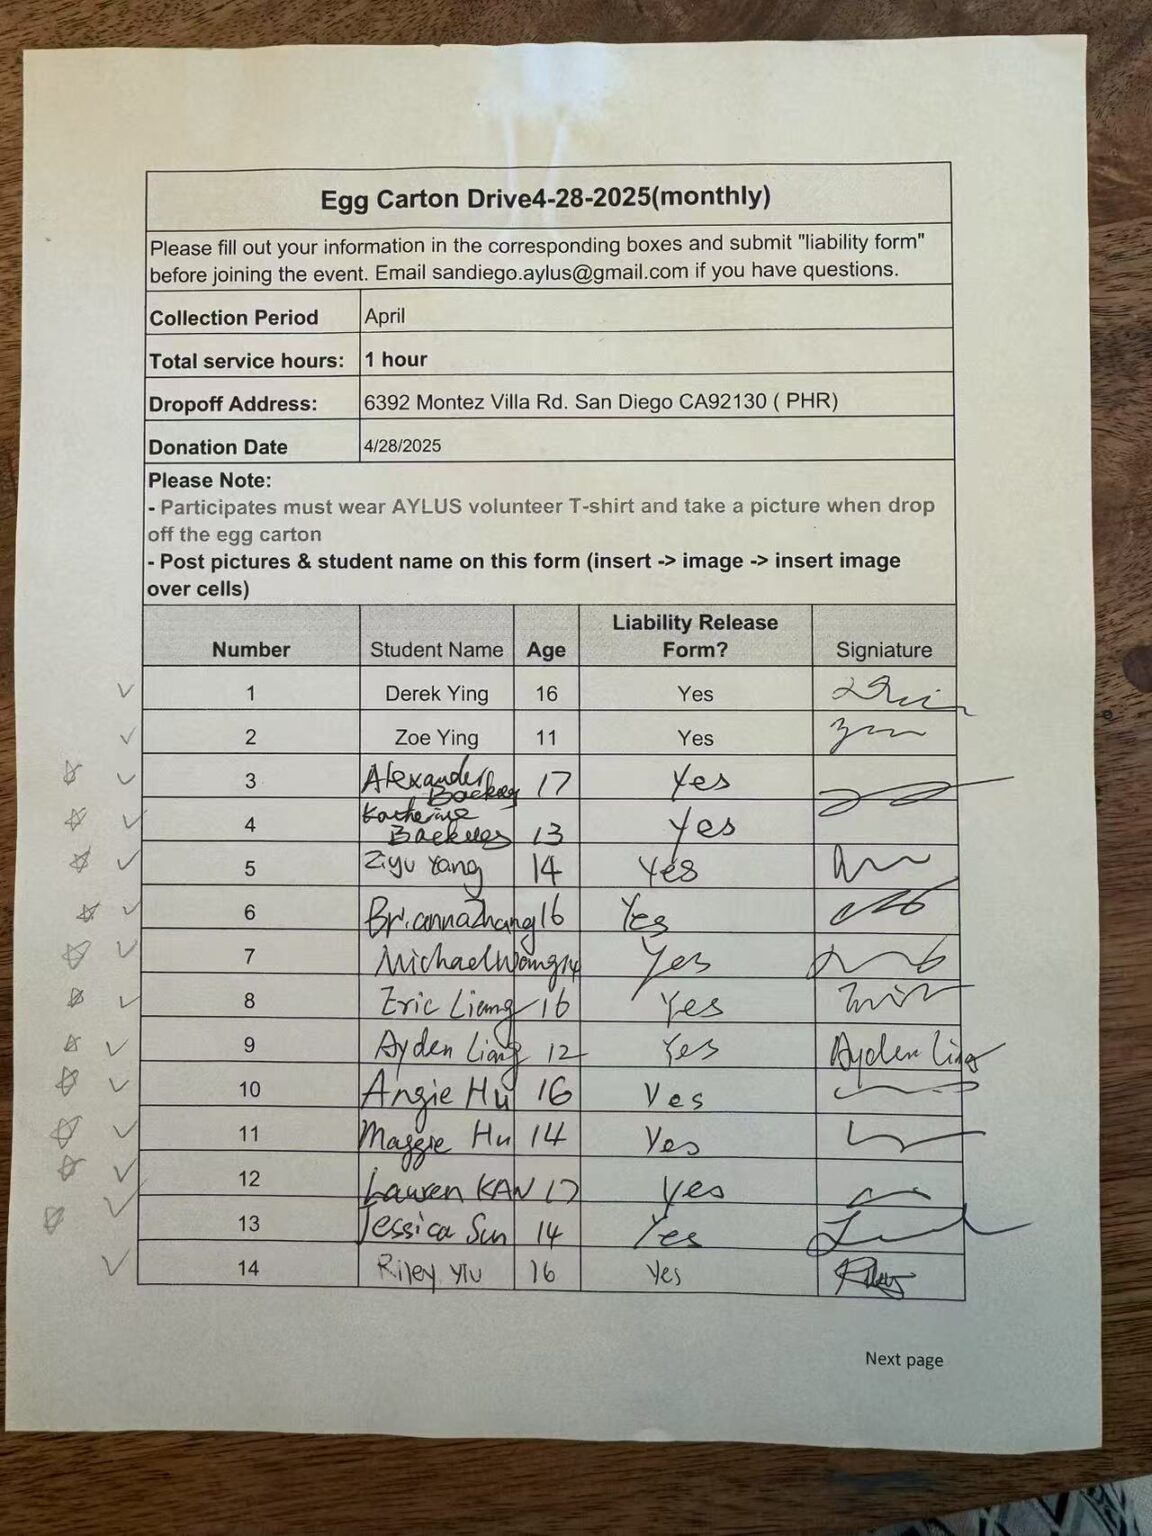 Egg Carton Drive4-28-2025(monthly)
Please fill out your information in the corresponding boxes and submit "liability form"
before joining the event. Email sandiego.aylus@gmail.com if you have questions.
Collection Period April
Total service hours: 1 hour
Dropoff Address: 6392 Montez Villa Rd. San Diego CA92130 ( PHR)
Donation Date 4/28/2025
Please Note:
- Participates must wear AYLUS volunteer T-shirt and take a picture when drop
off the egg carton
- Post pictures & student name on this form (insert -> image -> insert image
over cells)
Number Student Name Age Liability Release Form? Signiature
1 Derek Ying 16 Yes
2 Zoe Ying 11 Yes
3 Alexander 17 Yes
4 Katherine 13 Yes
5 Ziyu Yang 14 Yes
6 Brianna Zhang 16 Yes
7 Michael Wang 14 Yes
8 Eric Liang 16 Yes
9 Ayden Liang 12 Yes Ayden Liang
10 Angie Hu 16 Yes
11 Maggie Hu 14 Yes
12 Lauren KAN 17 Yes
13 Jessica Sun 14 Yes
14 Riley YIU 16 Yes Riley
Next page